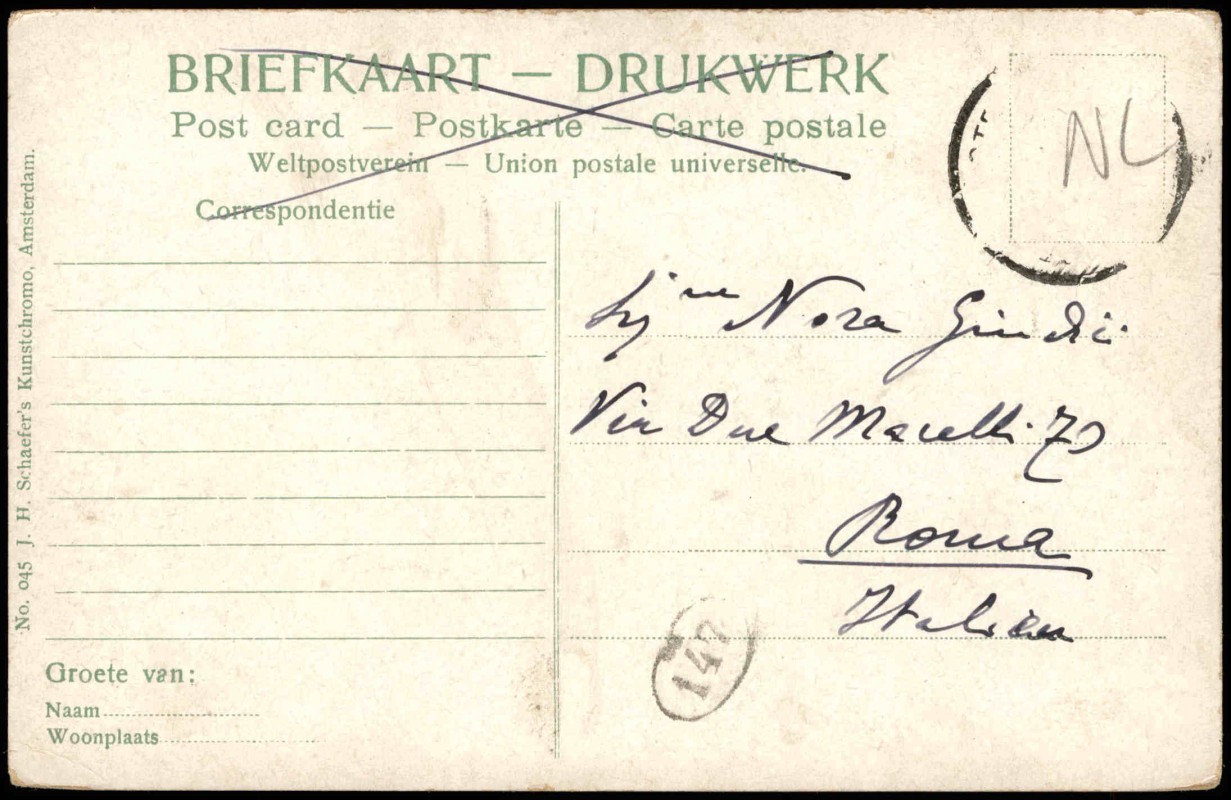 BRIEFKAART — DRUKWERK
Post card — Postkarte — Carte postale
Weltpostverein — Union postale universelle.
Correspondentie
NL
Nora Giudici
Via Due Macelli 79
Roma
Italien
147
Groete van:
Naam
Woonplaats
No. 045 J. H. Schaefer's Kunstchromo, Amsterdam.